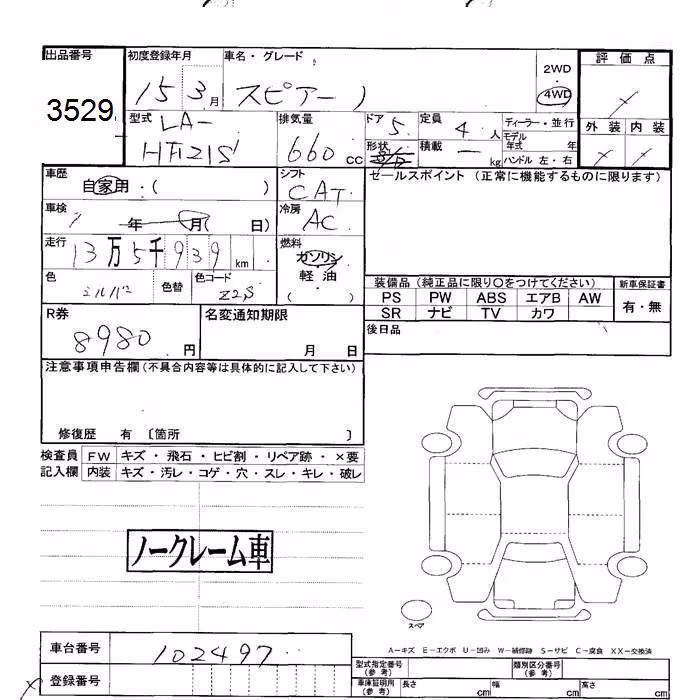 出品番号
3529
初度登録年月
15 3 月
車名・グレード
スピアーノ
2WD
4WD
評価点
×
外装 内装
× ×
型式
LA-
HF21S
排気量
660 cc
ドア
5
定員
4 人
ディーラー・並行
モデル
年式 年
ハンドル 左・右
形状
積載
ー kg
車歴
自家用・( )
シフト
CAT
セールスポイント (正常に機能するものに限ります)
車検
年 月( 日)
冷房
AC
走行
13万5千939 km
燃料
ガソリン
軽油
( )
色
シルバー
色替
色コード
Z2S
装備品(純正品に限り○をつけてください)
新車保証書
PS PW ABS エアB AW
SR ナビ TV カワ
有・無
後日品
R券
8980 円
名変通知期限
月 日
注意事項申告欄(不具合内容等は具体的に記入して下さい)
修復歴 有 〔箇所 〕
検査員
記入欄
FW キズ・飛石・ヒビ割・リペア跡・×要
内装 キズ・汚レ・コゲ・穴・スレ・キレ・破レ
ノークレーム車
スペア
A−キズ E−エクボ U−凹み W−補修跡 S−サビ C−腐食 XX−交換済
車台番号
102497
登録番号
型式指定番号
(参考)
類別区分番号
(参考)
車庫証明用
(参考)
長さ cm
幅 cm
高さ cm